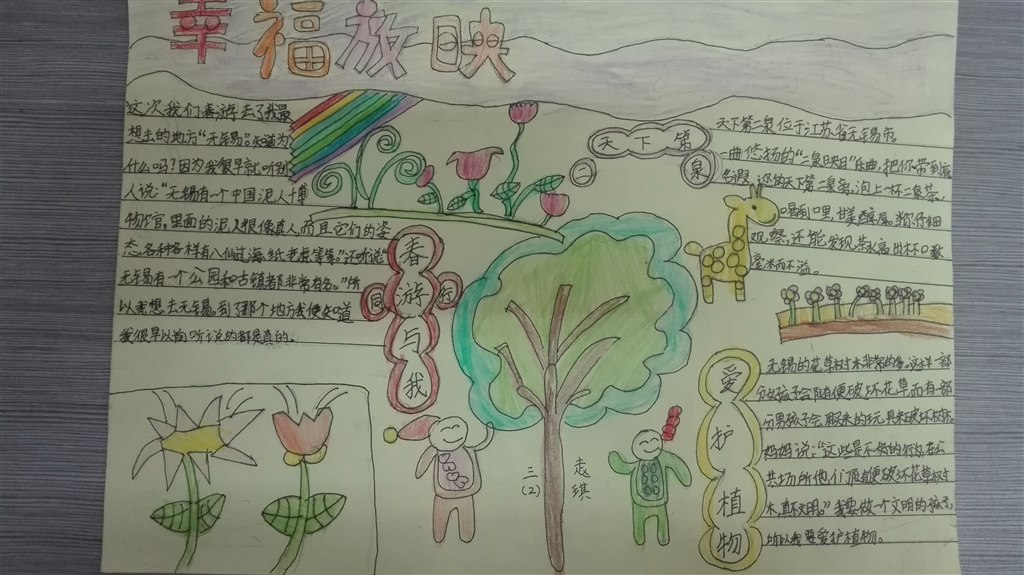 幸福放映
这次我们春游去了我最
想去的地方“无锡”。知道为
什么吗?因为我很早就听别
人说:“无锡有一个中国泥人博
物官,里面的泥人很像真人,而且它们的姿
态各种各样有八仙过海、纸老虎等等。”还听说“
无锡有一个公园和古镇都非常有名。”所
以我想去无锡。到了那个地方我便知道
我很早以前听说的都是真的。
春游与我
同行
天下第
二泉
天下第二泉位于江苏省无锡市。
一曲悠扬的“二泉映月”乐曲,把你带到
天下第二泉
泡上一杯二泉茶,
喝到口里,甘美醇厚。你仔细
观察,还能发现泉水高出杯口数
毫米而不溢。
爱护植物
无锡的花草树木非常的
分女孩子会随便破坏花草,而有一部
分男孩子会
妈妈说:“这些是不好的行为,在公
共场所他们
破坏花草树
木,真不文明。”我要做一个文明的孩子,
所以我要爱护植物。
三
(2)
志琪